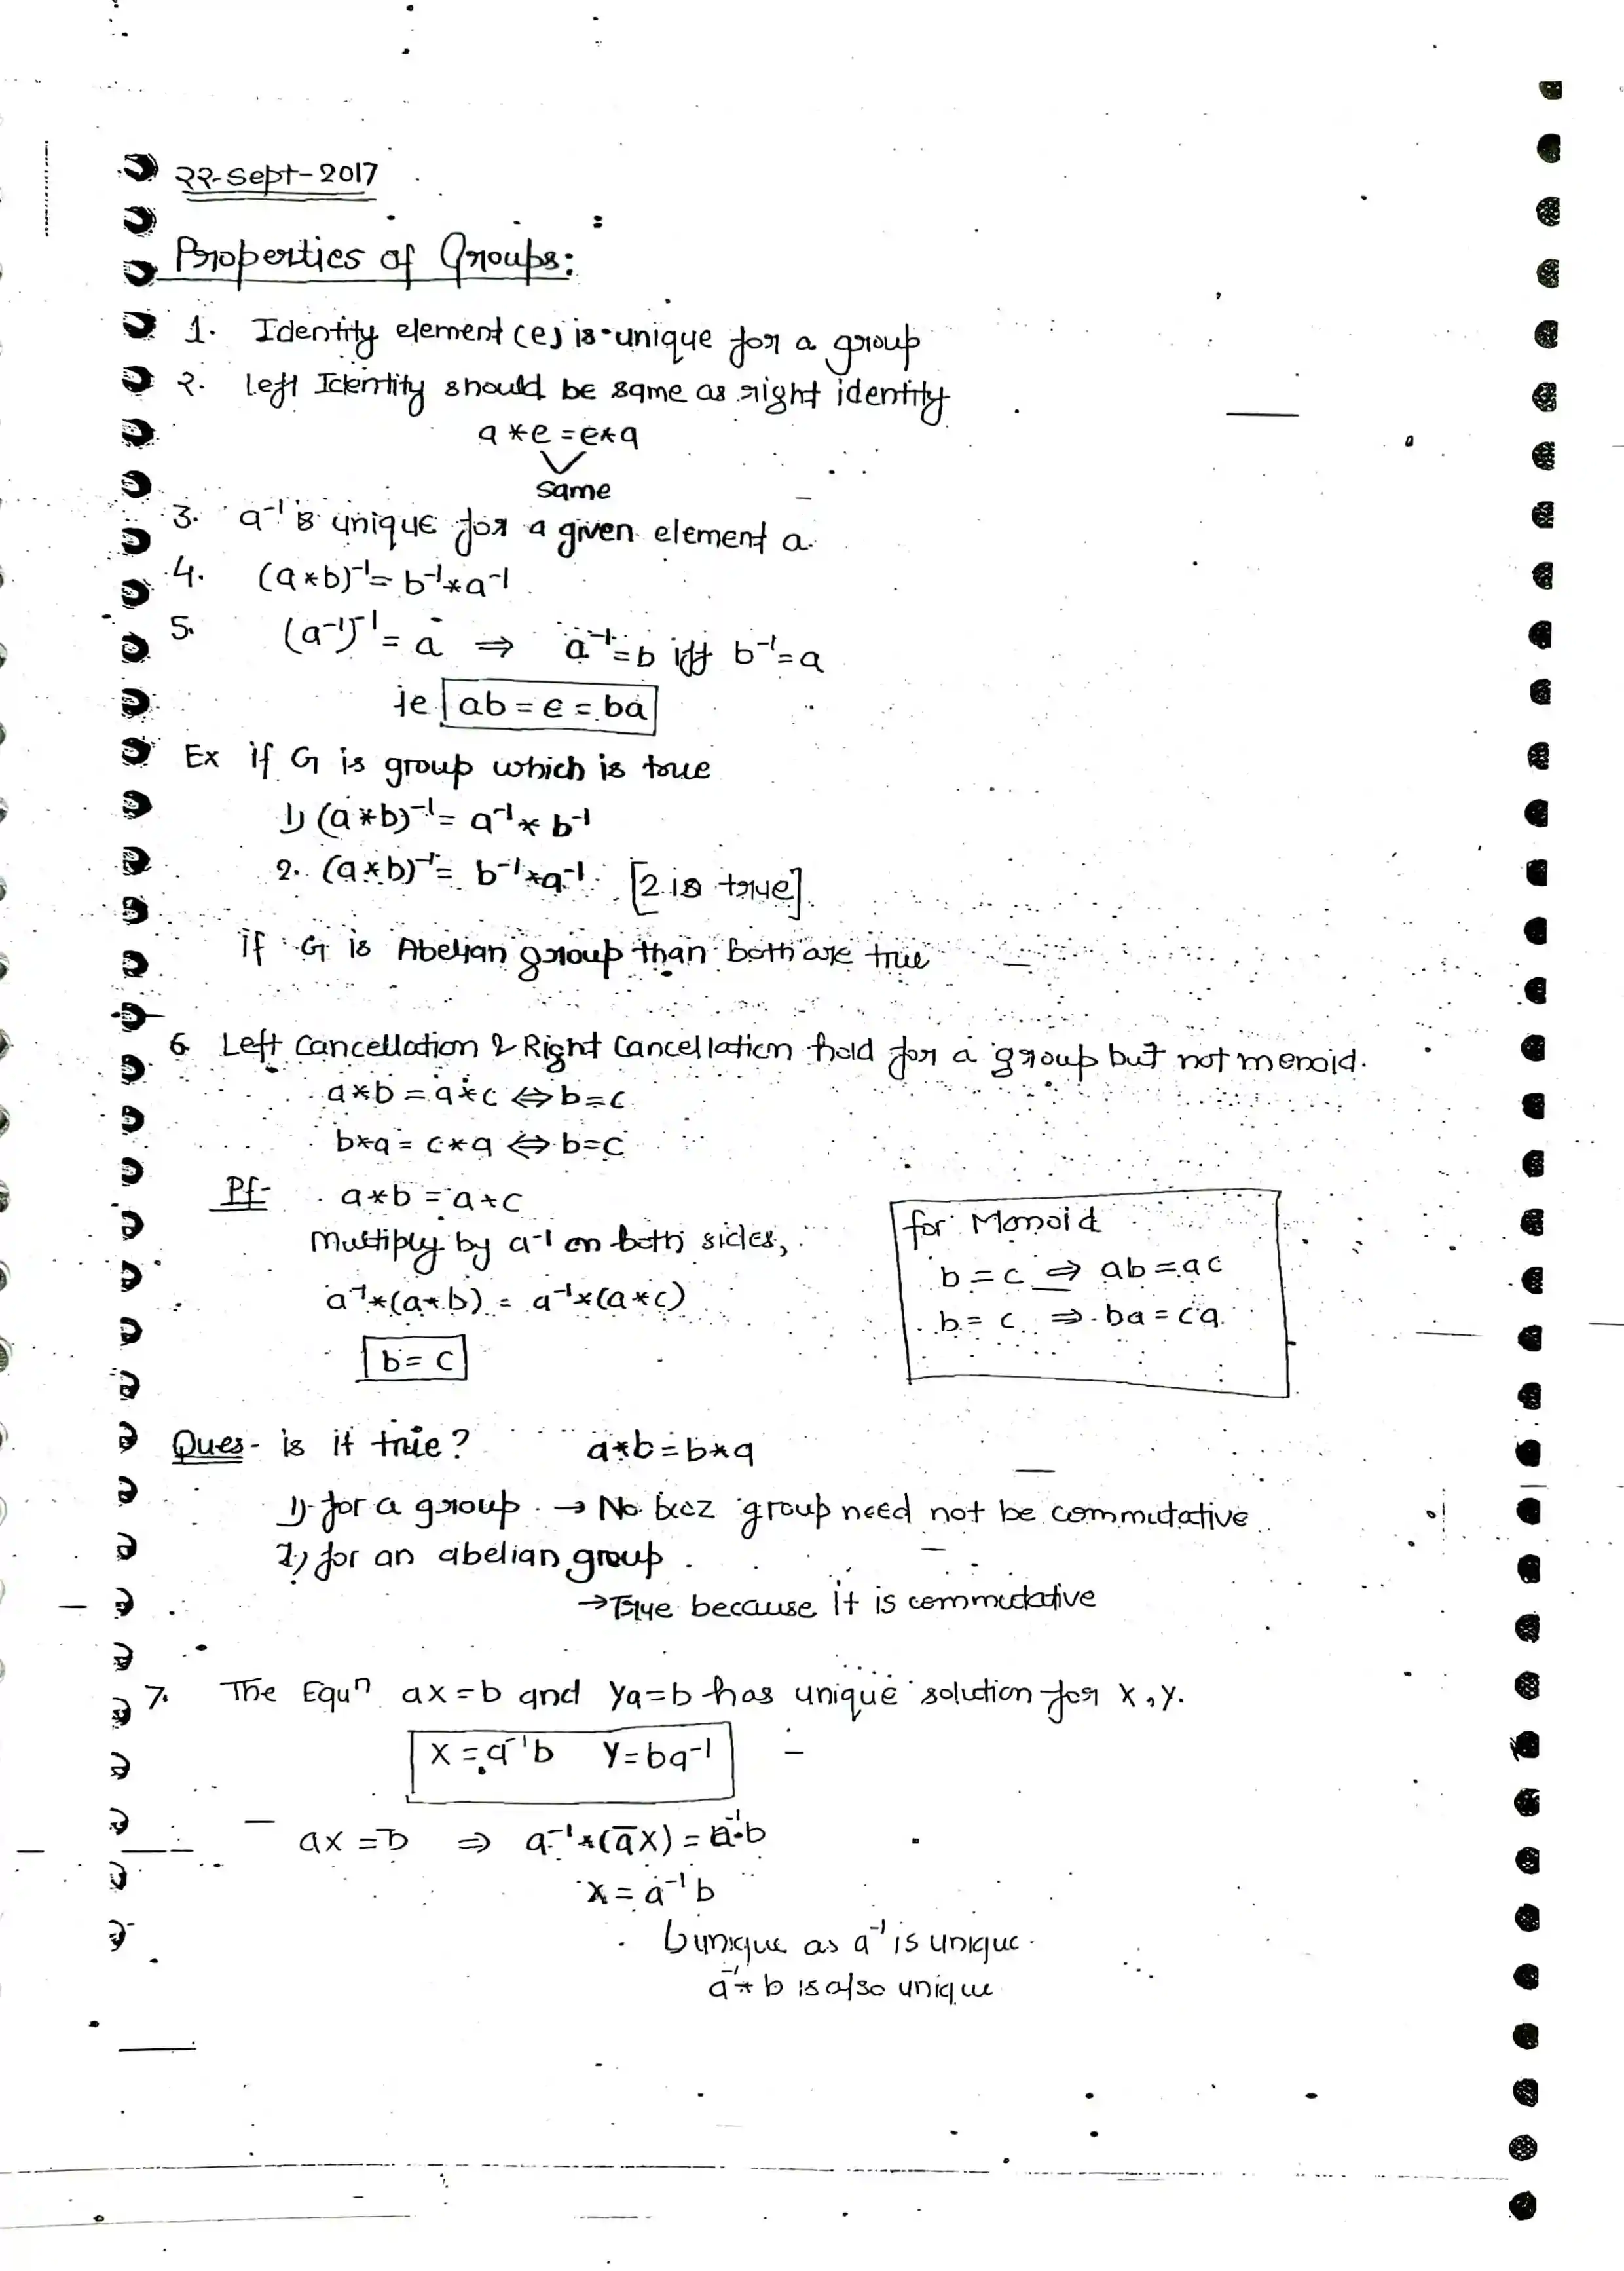 22-Sept-2017
Properties of Groups:
1. Identity element (e) is unique for a group
2. left Identity should be same as right identity
a * e = e * a
same
3. a⁻¹ is unique for a given element a.
4. (a * b)⁻¹ = b⁻¹ * a⁻¹
5. (a⁻¹)⁻¹ = a ⇒ a⁻¹ = b iff b⁻¹ = a
ie ab = e = ba
Ex if G is group which is true
1) (a * b)⁻¹ = a⁻¹ * b⁻¹
2. (a * b)⁻¹ = b⁻¹ * a⁻¹ [2 is true]
if G is Abelian group than both are true
6 Left Cancellation & Right Cancellation hold for a group but not monoid.
a * b = a * c ⇔ b = c
b * a = c * a ⇔ b = c
Pf- a * b = a * c
Multiply by a-1 on both sides,
a⁻¹ * (a * b) = a⁻¹ * (a * c)
b = c
for Monoid
b = c ⇒ ab = ac
b = c ⇒ ba = ca
Ques- is it true? a * b = b * a
1) for a group → No bcz group need not be commutative
2) for an abelian group
→ True because it is commutative
7. The Equⁿ ax = b and ya = b has unique solution for x, y.
x = a⁻¹b y = ba⁻¹
ax = b ⇒ a⁻¹ * (ax) = a⁻¹·b
x = a⁻¹ b
unique as a⁻¹ is unique.
a⁻¹ * b is also unique